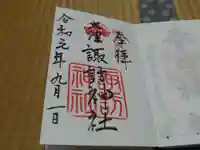 奉拝
諏訪神社
令和元年九月一日